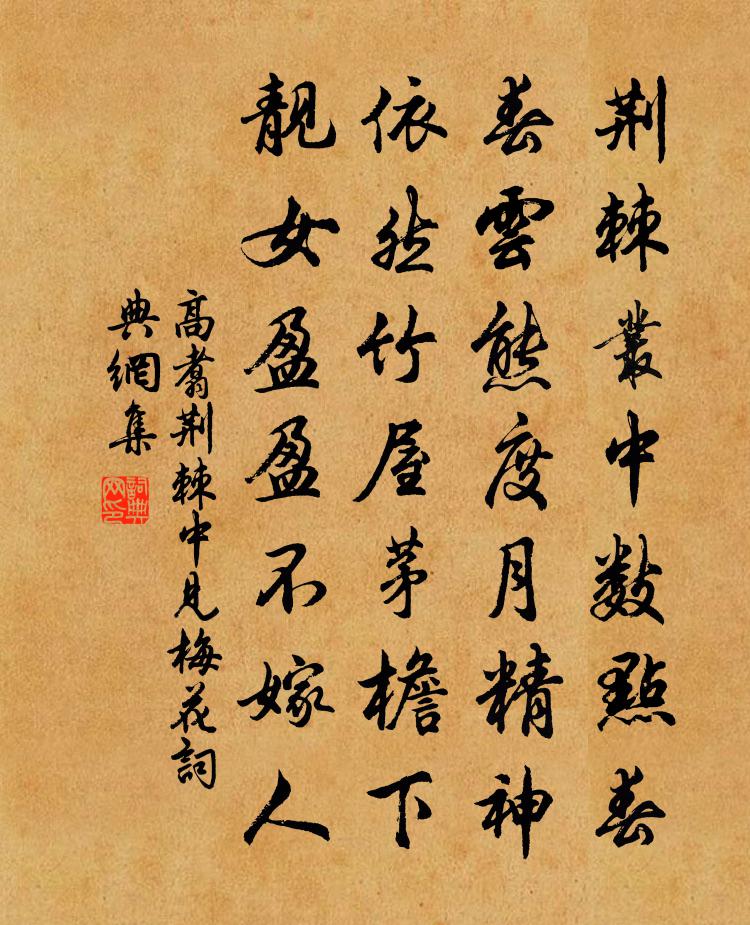 荆棘叢中數點春
春雲態度月精神
依然竹屋茅檐下
靚女盈盈不嫁人
高翥荆棘中見梅花詞
典網集
詞典
网印